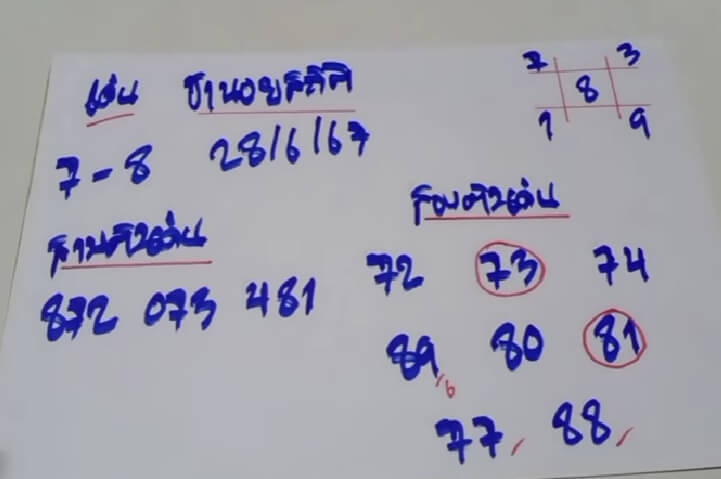 เด่น ชำนอยสถิติ
7-8 28/6/67
7 3
8
1 9
สามตัวเด่น
872 073 481
สองตัวเด่น
72 73 74
89 80 81
/6
77, 88,